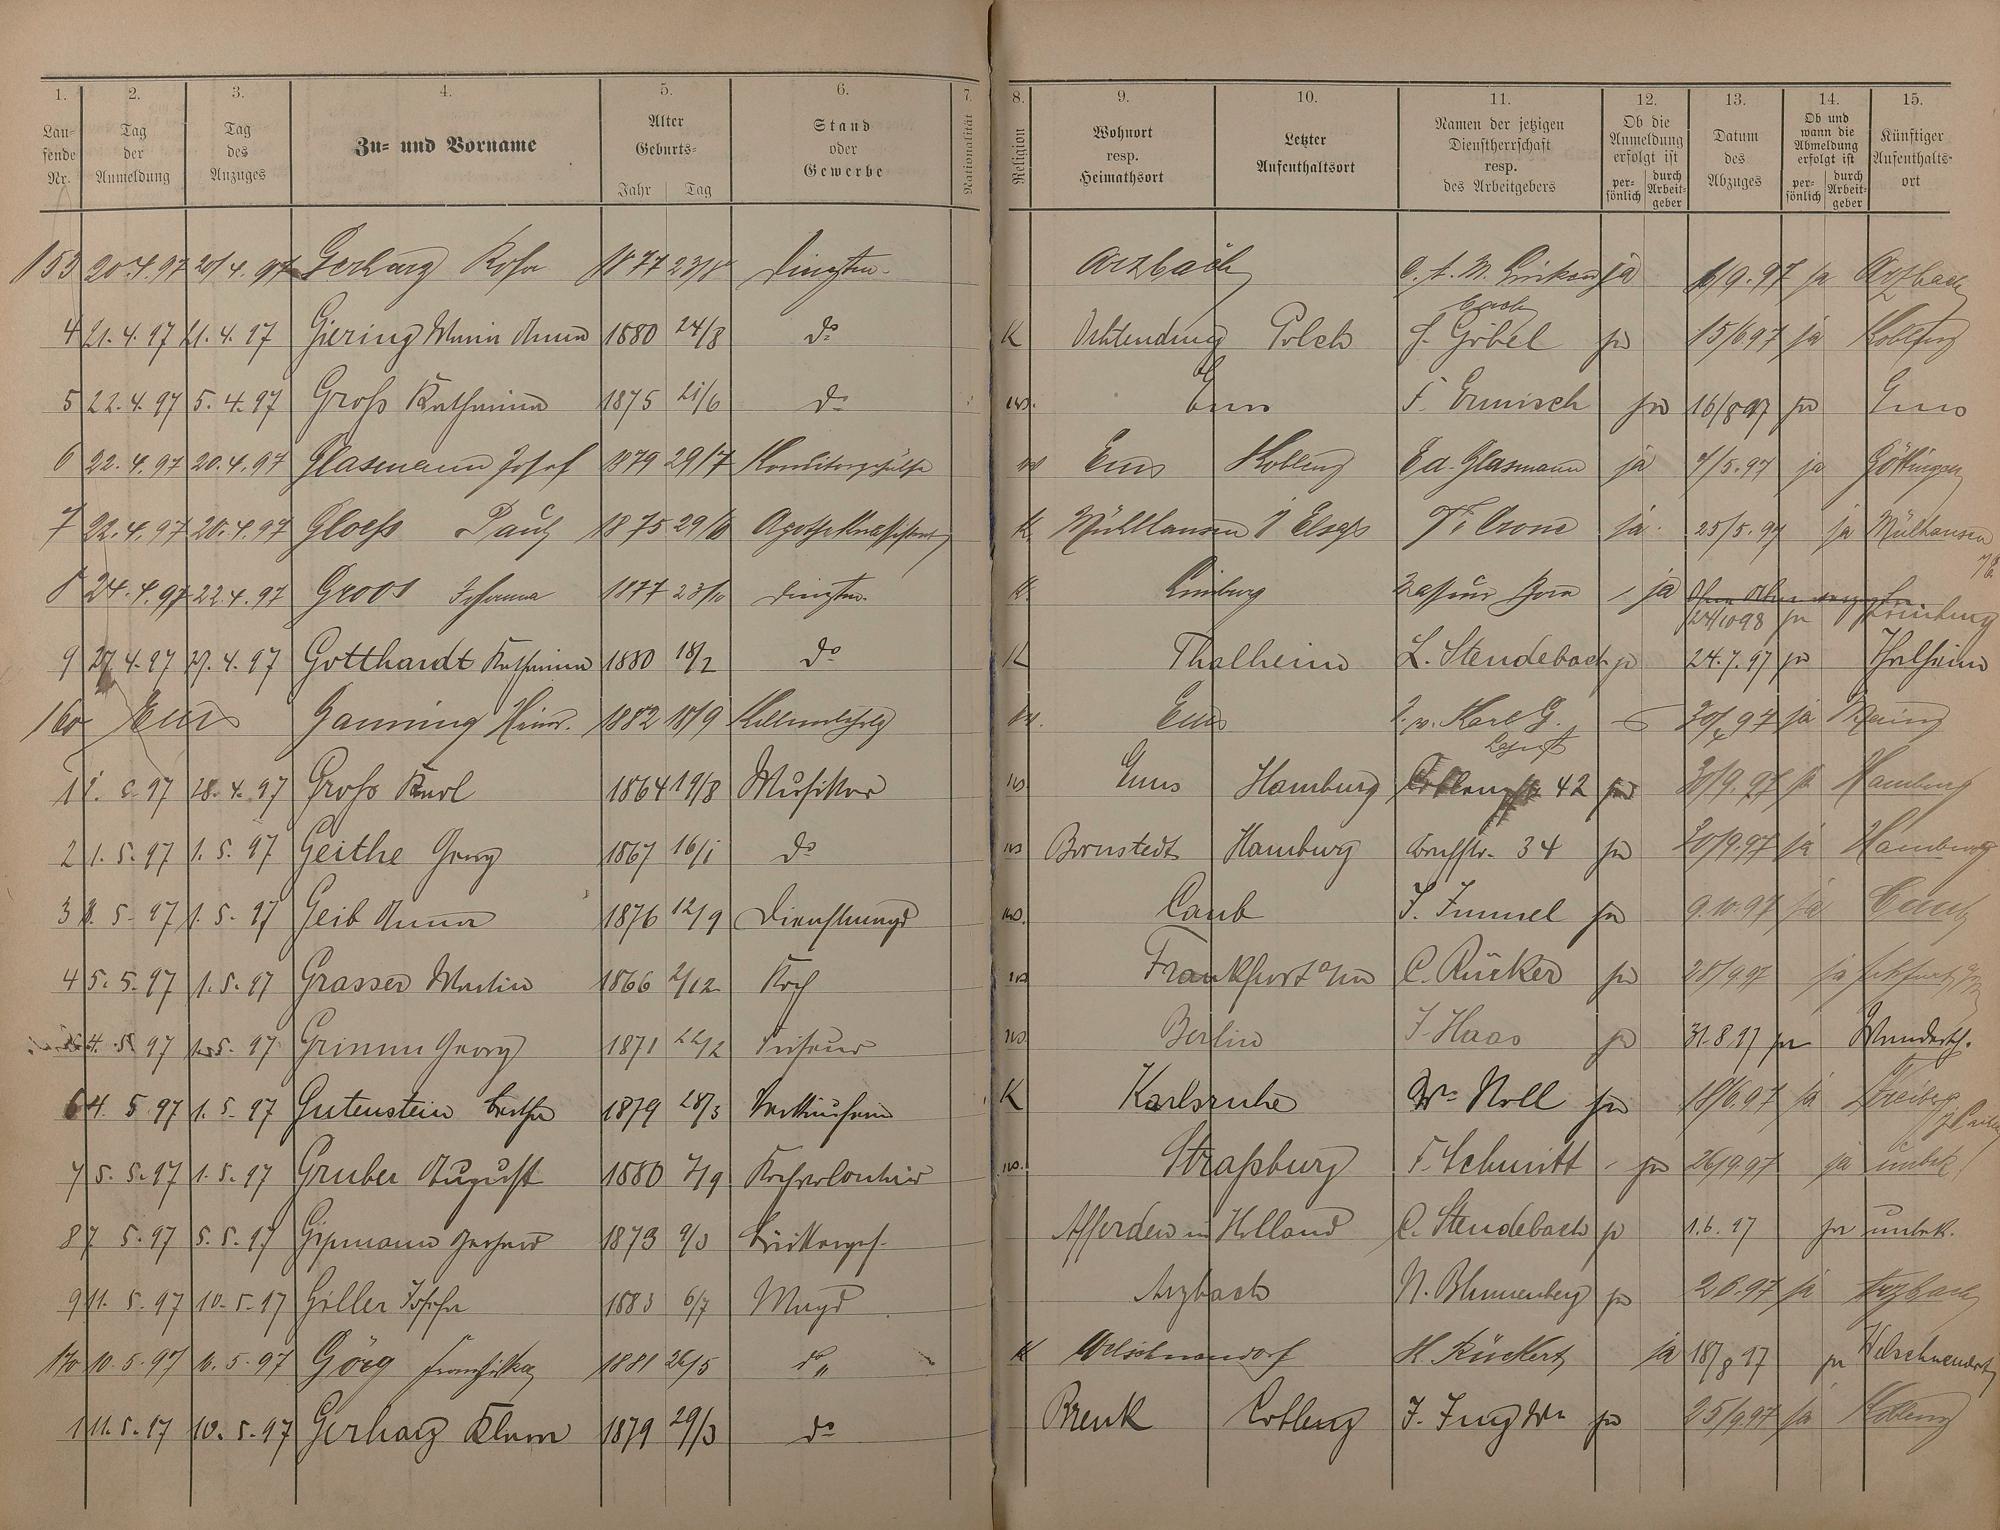 1. 2. 3. 4. 5. 6. 7. 8. 9. 10. 11. 12. 13. 14. 15.
Lau-fende Nr. Tag der Anmeldung Tag des Anzuges Zu- und Vorname Alter Geburts- Jahr Tag Stand oder Gewerbe Nationalität Religion Wohnort resp. Heimathsort Letzter Aufenthaltsort Namen der jetzigen Dienstherrschaft resp. des Arbeitgebers Ob die Anmeldung erfolgt ist per-sönlich durch Arbeit-geber Datum des Abzuges Ob und wann die Abmeldung erfolgt ist per-sönlich durch Arbeit-geber Künftiger Aufenthalts-ort
153 20.4.97 20/4.97 Gerharz Rosa 1877 23/8 Arzbach ja 6/9.97 ja Arzbach
4 21.4.97 21.4.97 Giering Maria Anna 1880 24/8 do K Ochtendung Polch F. Göbel ja 15/6 97 ja Koblenz
5 22.4.97 5.4.97 Groß Katharina 1875 21/6 do ev. Ems F. Ermisch ja 16/8 97 ja Ems
6 22.4.97 20.4.97 Glasmann Josef 1879 29/7 Konditorgehülfe Ems Koblenz Ed. Glasmann ja 7/5.97 ja Göttingen
7 22.4.97 20.4.97 Gloess Paul 1875 29/10 K. Mühlhausen i/ Elsass Th Crone ja 25/5.97 ja Mülhausen
8 24.4.97 22.4.97 Groos Johanna 1877 23/10 K. Limburg ja 24/10 98 ja Limburg
9 27.4.97 27.4.97 Gotthardt Katharina 1880 18/2 do K Thalheim L. Stendebach ja 24.7.97 ja Thalheim
160 Ems Ganning Heinr. 1882 18/9 Kellnerlehrlg ev. Ems Karl G. 97 ja Mainz
1 97 28.4.97 Groß Karl 1864 19/8 Musiker ev. Ems Hamburg 42 ja 30/9.97 ja Hamburg
2 1.5.97 1.5.97 Geithe Georg 1867 16/1 do ev Bornstedt Hamburg 34 ja 30/9 97 ja Hamburg
3 1.5.97 1.5.97 Geib Anna 1876 12/9 Dienstmagd ev. Caub J. Immel ja 9.10.97 ja Caub
4 5.5.97 1.5.97 Grasser Martin 1866 2/12 Koch ev Frankfurt a/m C. Rücker ja 28/9 97 ja
4.5.97 1.5.97 Grimm Georg 1871 22/2 Friseur ev. Berlin J. Haas ja 31.8.97 ja
6 4.5.97 1.5.97 Gutenstein Bertha 1879 28/3 Verkäuferin K Karlsruhe Wwe Noll ja 18/6.97 ja Freiberg
7 5.5.97 1.5.97 Gruber August 1880 7/9 Kochvolontair ev. Straßburg F. Schmitt ja 26/9 97 ja unbek.
8 7.5.97 5.5.97 Gipmann Gerhard 1873 9/3 Bäckerges. Afferden in Holland C. Stendebach ja 1.6.97 ja unbek.
9 11.5.97 10.5.97 Giller Josefa 1883 6/7 Magd Arzbach N. Blumenberg ja 2.6.97 ja Arzbach
170 10.5.97 10.5.97 Görg Franziska 1881 26/5 do K Welschneudorf H. Rückert ja 18/8 97 ja Welschneudorf
1 11.5.97 10.5.97 Gerharz Klara 1879 29/3 do Brenk Coblenz J. Jung Wwe ja 25/9 97 ja Koblenz